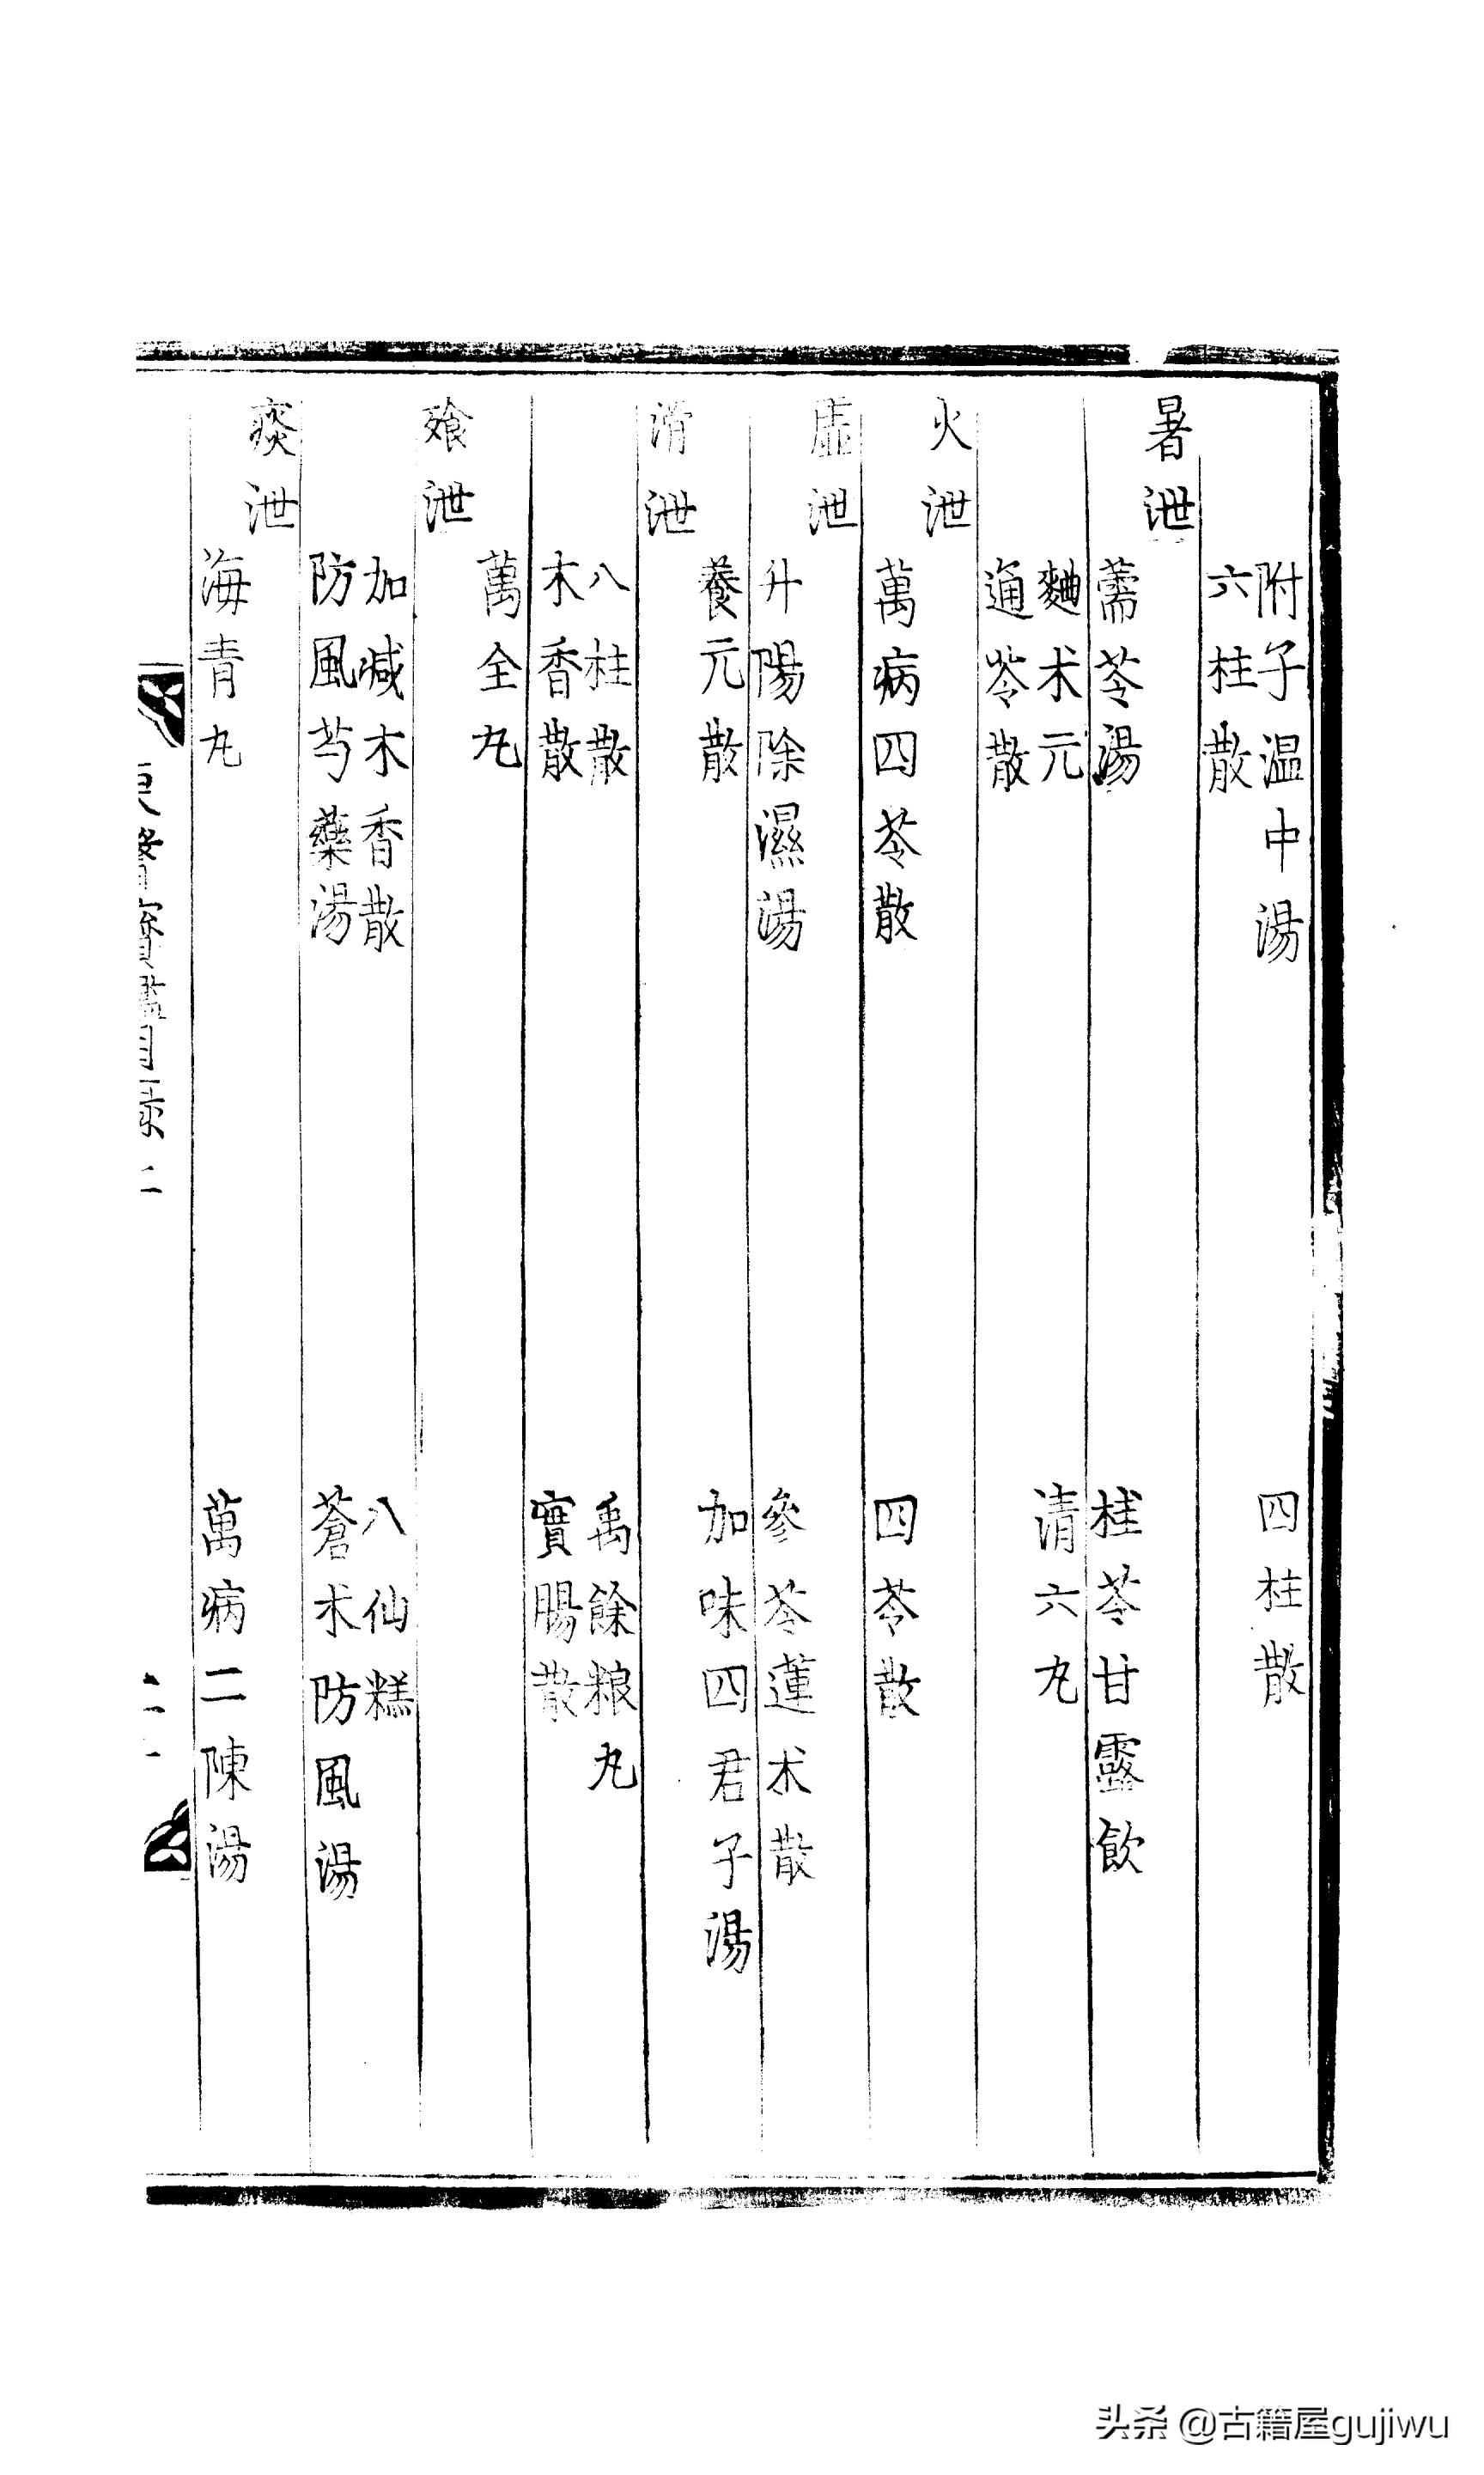 附子温中湯 四柱散
六柱散
暑泄
薷苓湯 桂苓甘露飲
麯朮元 清六丸
通苓散
火泄
萬病四苓散 四苓散
虛泄
升陽除濕湯 參苓蓮朮散
養元散 加味四君子湯
滑泄
八柱散 禹餘粮丸
木香散 實腸散
萬全丸
飱泄
加减木香散 八仙糕
防風芍藥湯 蒼朮防風湯
痰泄
海青丸 萬病二陳湯
醫寶鑑目録
二十一
头条 @古籍屋gujiwu